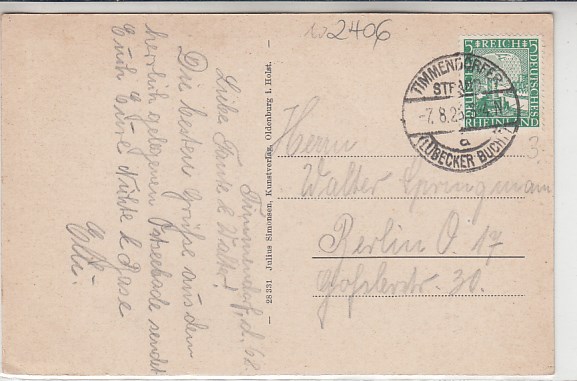 Timmendorf, d. 6.8.
Liebe Tante & Walter!
Die besten Grüße aus dem
herrlich gelegenen Ostseebade sendet
Euch Eure Nichte & Base
Elli.
28331 Julius Simonsen, Kunstverlag, Oldenburg i. Holst.
2406
5 REICH 5
DEUTSCHES
RHEINLAND
TIMMENDORFER
STRAND
-7.8.25
a
(LÜBECKER BUCHT)
3.-
Herrn
Walter Springmann
Berlin O. 17
Goßlerstr. 30.